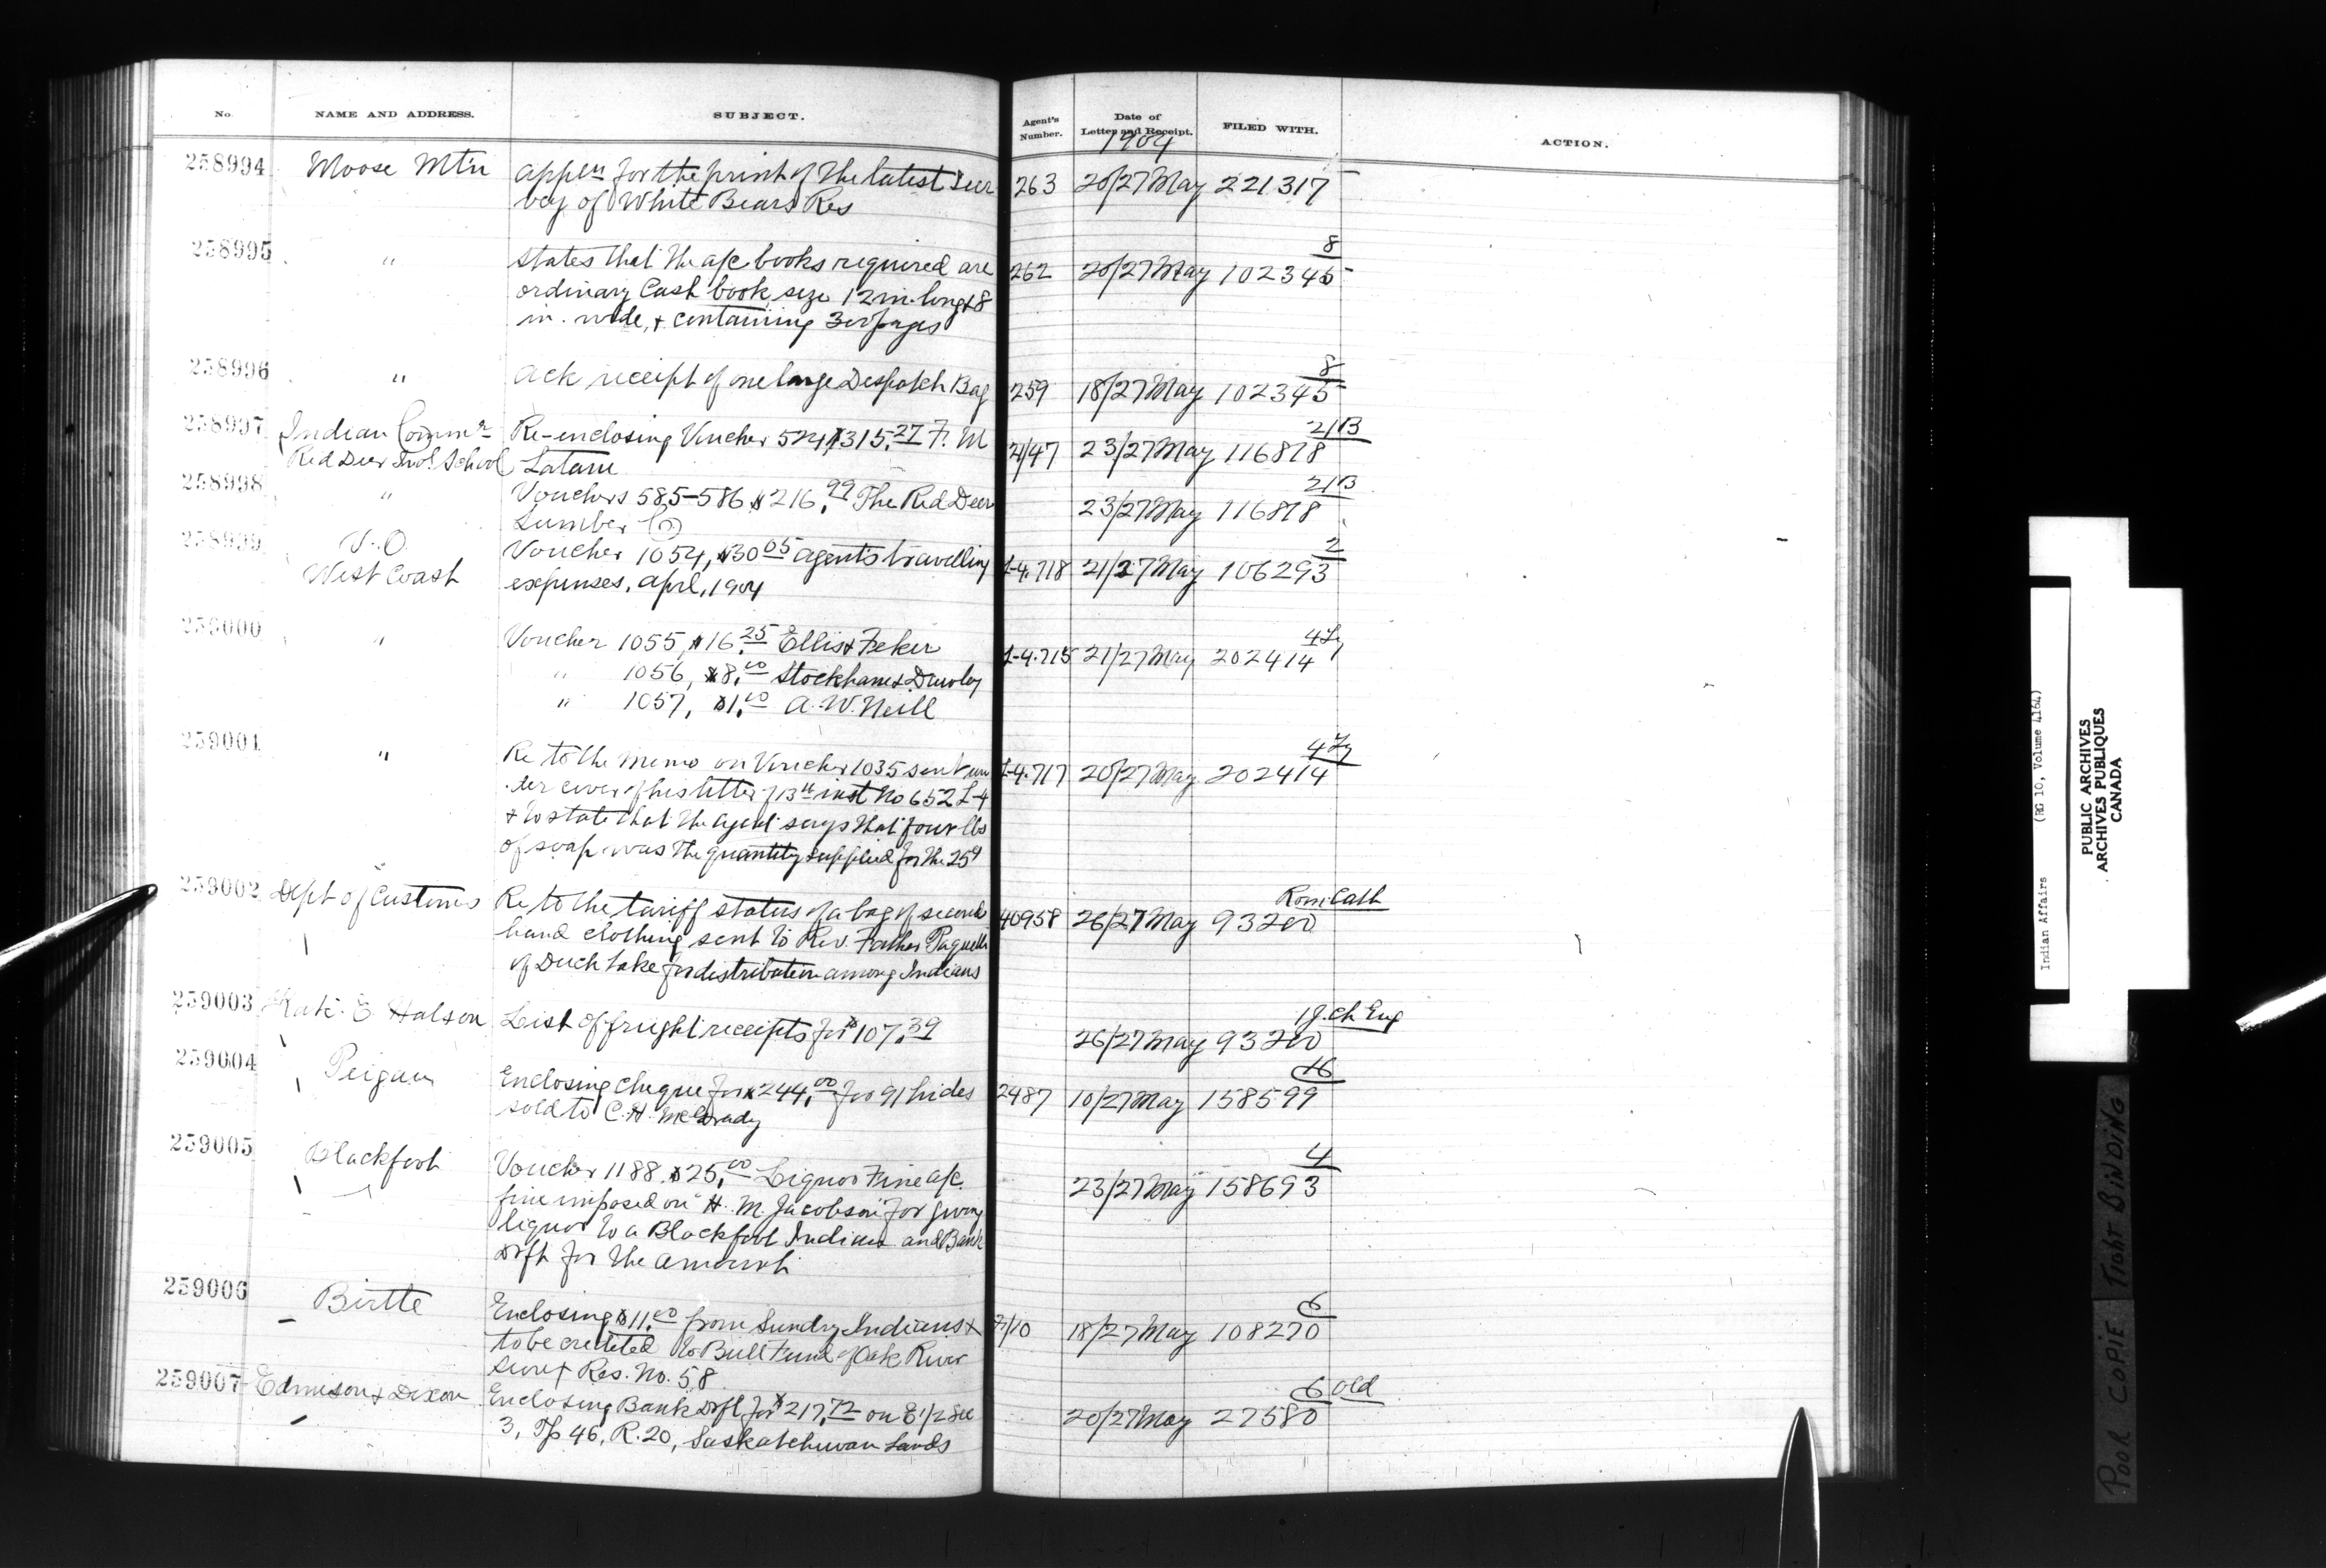 No. NAME AND ADDRESS. SUBJECT. Agent's Number. Date of Letter and Receipt. FILED WITH. ACTION.
1904
258994 Moose Mtn applⁿ for the print of the latest sur 263 20/27 May 221317
vey of White Bears Res
8
258995 " states that the a/c books required are 262 20/27 May 102345
ordinary Cash book, size 12 in. long & 8
in. wide, & containing 300 pages
8
258996 " ack receipt of one large Despatch Bag 259 18/27 May 102345
21B
258997 Indian Commr Re-enclosing Voucher 524 $315.27 F. M 2/47 23/27 May 116878
Red Deer Indl School Latam
21B
258998 " Vouchers 585-586 $216.99 The Red Deer 23/27 May 116878
Lumber Co
2
258999 V.O. Voucher 1054, $30.05 agent's travelling L-4.718 21/27 May 106293
West Coast expenses, April, 1904
259000 " Voucher 1055, $16.25 Ellis & L-4.715 21/27 May 202414
" 1056, $8.00 Stockham & Dawley
" 1057, $1.00 A. W. Neill
259001 " Re to the memo on Voucher 1035 sent un L-4.717 20/27 May 202414
der cover of his letter of 13th inst No 652 L-4
& to state that the agent says that four lbs
of soap was the quantity supplied for the 25¢
Rom Cath
259002 Dept of Customs Re to the tariff status of a bag of second 40958 26/27 May 93200
hand clothing sent to Rev. Father Paquette
of Duck Lake for distribution among Indians
1 J. Ch Eng
259003 Kate E Halson List of freight receipts for $107.39 26/27 May 93200
16
259004 Peigan Enclosing cheque for $244.00 for 91 hides 2487 10/27 May 158599
sold to C. H.
4
259005 Blackfoot Voucher 1188 $25.00 Liquor Fine a/c. 23/27 May 158693
fine imposed on H. M. Jacobson for giving
liquor to a Blackfoot Indian and Bank
Drft for the amount
6
259006 Birtle Enclosing $11.00 from Sundry Indians & 18/27 May 108270
to be credited to Bull Fund of Oak River
Sioux Res. No. 58
6 Old
259007 Edmison & Dixon Enclosing Bank Drft for $217.72 on E 1/2 Sec 20/27 May 27580
3, Tp 46, R. 20, Saskatchewan Lands
Indian Affairs (RG 10, Volume 4164)
PUBLIC ARCHIVES
ARCHIVES PUBLIQUES
CANADA
POOR COPIE TIGHT BINDING